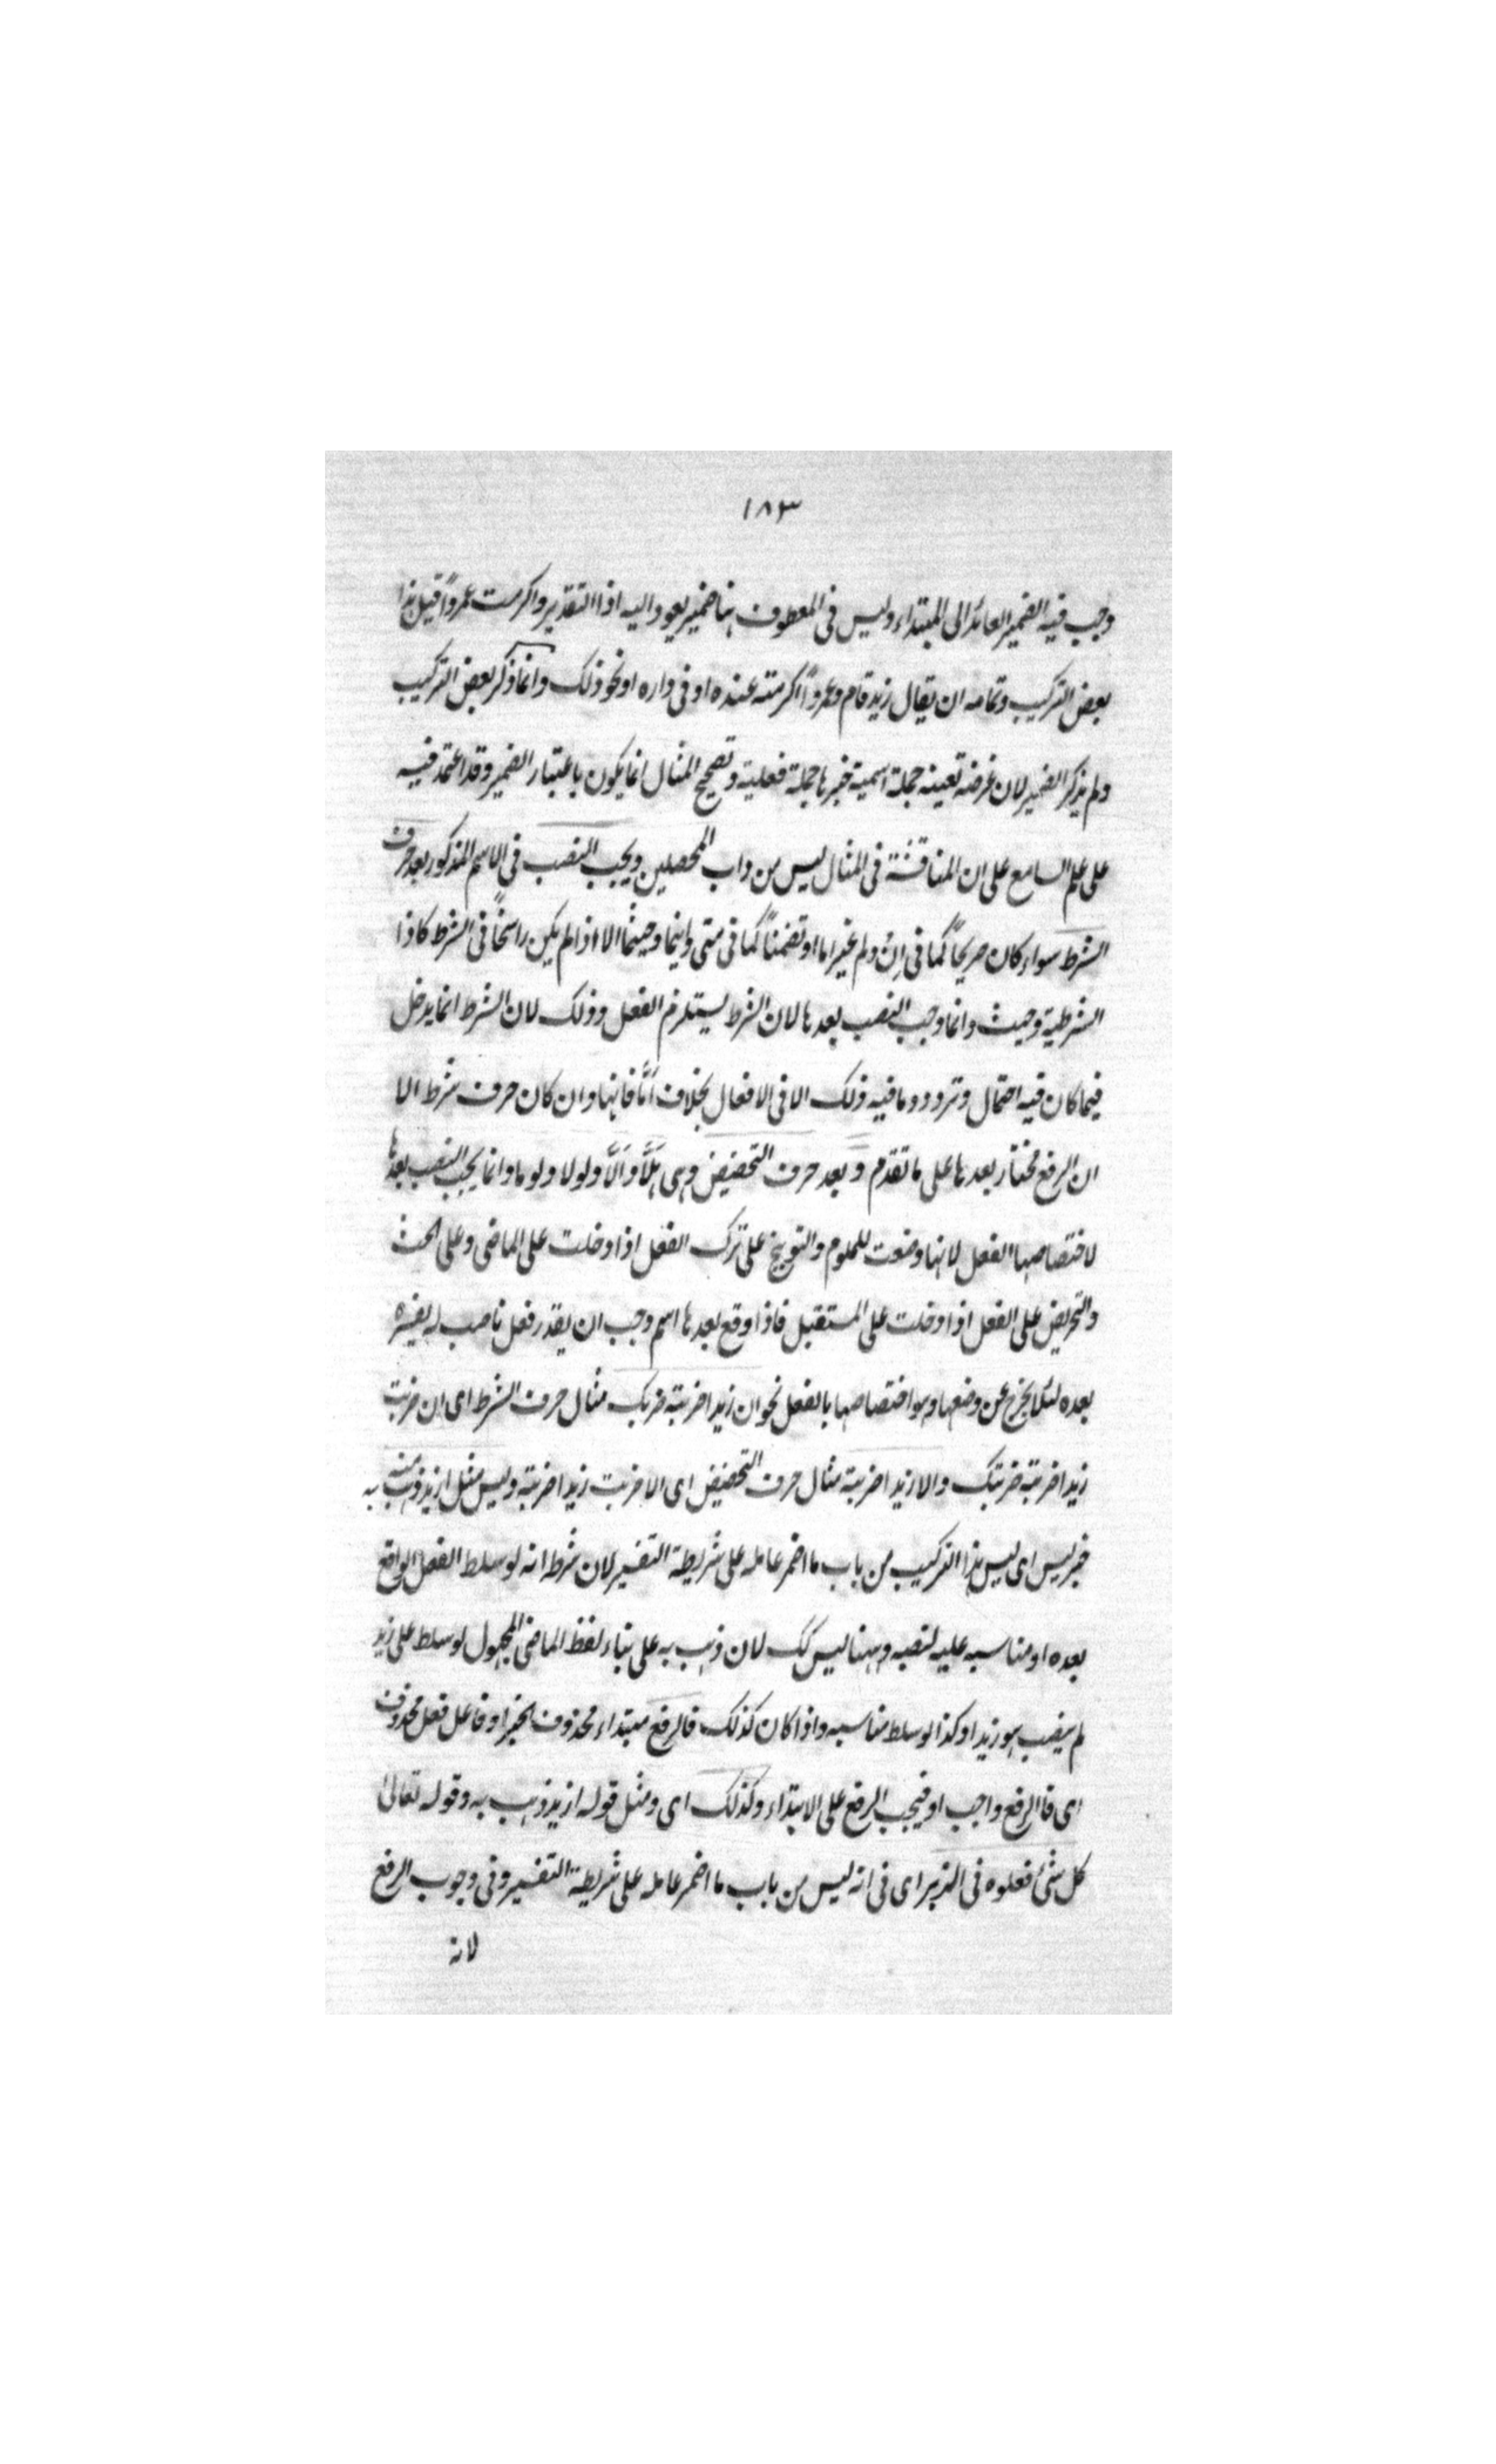 ١٨٣
وجب فيه الضمير العائد الى المبتداء وليس فى المعطوف هنا ضمير يعود اليه اذا التقدير واكرمت عمروًا قيل هذا
بعض التركيب وتمامه ان يقال زيد قام وعمروًا اكرمته عنده او فى داره او نحو ذلك وانما ذكر بعض التركيب
ولم يذكر الضمير لان غرضه تعينه جملة اسمية خبرها جملة فعلية وتصحيح المثال انما يكون باعتبار الضمير وقد اعتمد فيه
على علم السامع على ان المناقشة فى المثال ليس من داب المحصلين ويجب النصب فى الاسم المذكور بعد حرف
الشرط سواء كان صريحًا كما فى اِنْ ولم غير اما او تضمنًا كما فى متى واينما وحيثما الا اذا لم يكن راسخًا فى الشرط كاذا
الشرطية وحيث وانما وجب النصب بعدها لان الشرط يستلزم الفعل وذلك لان الشرط انما يدخل
فيما كان فيه احتمال وتردد وما فيه ذلك الا فى الافعال بخلاف اَمَّا فانها وان كان حرف شرط الا
ان الرفع مختار بعدها على ما تقدم وبعد حرف التحضيض وهى هَلَّا وَاَلَّا ولولا ولوما وانما يجب النصب بعدها
لاختصاصها الفعل لانها وضعت للملوم والتوبيخ على ترك الفعل اذا دخلت على الماضى وعلى الحث
والتحريض على الفعل اذا دخلت على المستقبل فاذا وقع بعدها اسم وجب ان يقدر فعل ناصب له يفسره
بعده لئلا يخرج عن وضعها وهو اختصاصها بالفعل نحو ان زيدا ضربته ضربك مثال حرف الشرط اى ان ضربت
زيدا ضربته ضربتك والا زيدا ضربته مثال حرف التحضيض اى الا ضربت زيدا ضربته وليس مثل ازيد ذهب به منه
خبر ليس اى ليس هذا التركيب من باب ما اضمر عامله على شريطة التفسير لان شرطه انه لو سلط الفعل الواقع
بعده او مناسبه عليه لنصبه وههنا ليس كك لان ذهب به على بناء لفظ الماضى المجهول لو سلط على زيد
لم ينصب هو زيدا وكذا لو سلط مناسبه واذا كان كذلك فالرفع مبتداء محذوف الخبر او فاعل فعل محذوف
اى فاالرفع واجب او فيجب الرفع على الابتداء وكذلك اى ومثل قوله ازيد ذهب به وقوله تعالى
كل شئ فعلوه فى الزبر اى فى انه ليس من باب ما اضمر عامله على شريطة التفسير وفى وجوب الرفع
لانه